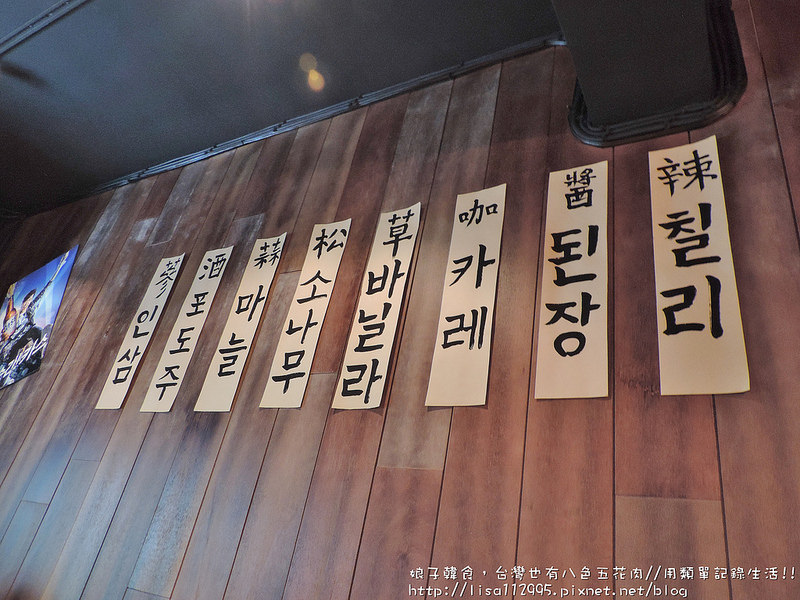 蔘
인삼
酒
포도주
蒜
마늘
松
소나무
草
바닐라
咖
카레
醬
된장
辣
칠리
娘子韓食，台灣也有八色五花肉//用類單記錄生活!!
http://lisa112995.pixnet.net/blog